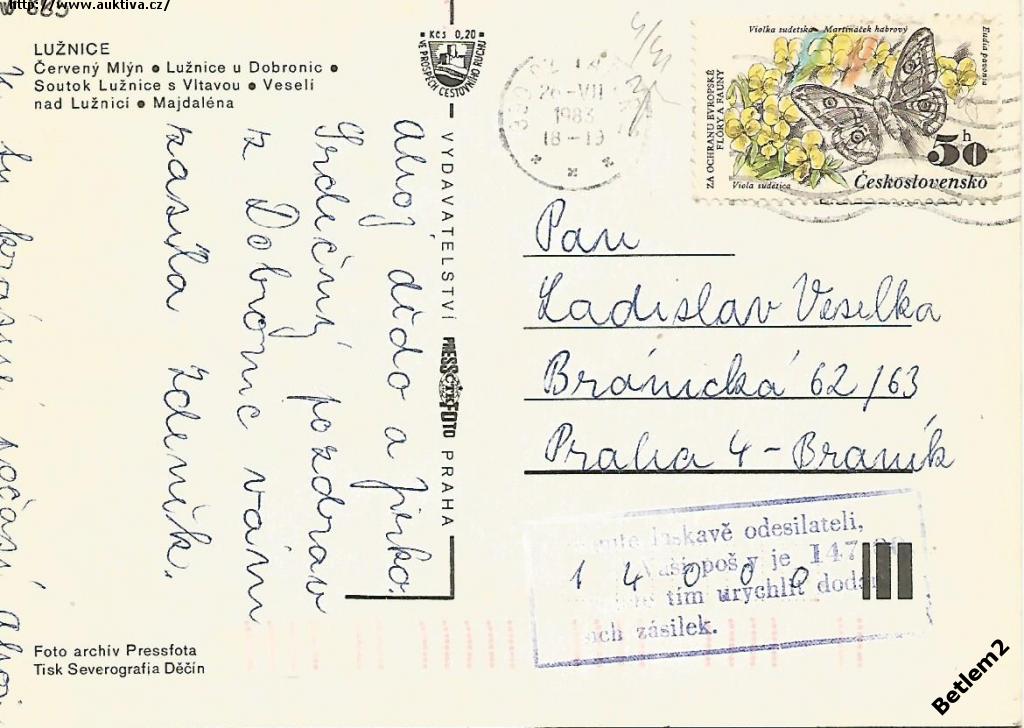 http://www.auktiva.cz/
LUŽNICE
Červený Mlýn • Lužnice u Dobronic •
Soutok Lužnice s Vltavou • Veselí
nad Lužnicí • Majdaléna
Kčs 0,20
VE PROSPĚCH CESTOVNÍHO RUCHU
26.-VII
1983
18-19
Violka sudetská Martináček habrový
Eudia pavonia
ZA OCHRANU EVROPSKÉ
FLÓRY A FAUNY
Viola sudetica
50 h
Československo
Ahoj dědo a Jirko.
Srdečný pozdrav
z Dobronic vám
zasílá Zdeněk.
krásné počasí Ahoj
VYDAVATELSTVÍ PRESSFOTO PRAHA
ČTK
Pan
Ladislav Veselka
Bránická 62/63
Praha 4 - Braník
laskavě odesilateli,
Vaší pošty je 147 00
14000
tím urychlit
zásilek.
Foto archív Pressfota
Tisk Severografia Děčín
Betlem2